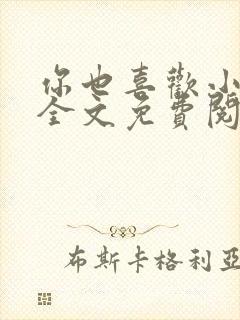 你也喜歡小
全文免費閱
布斯卡格利亞